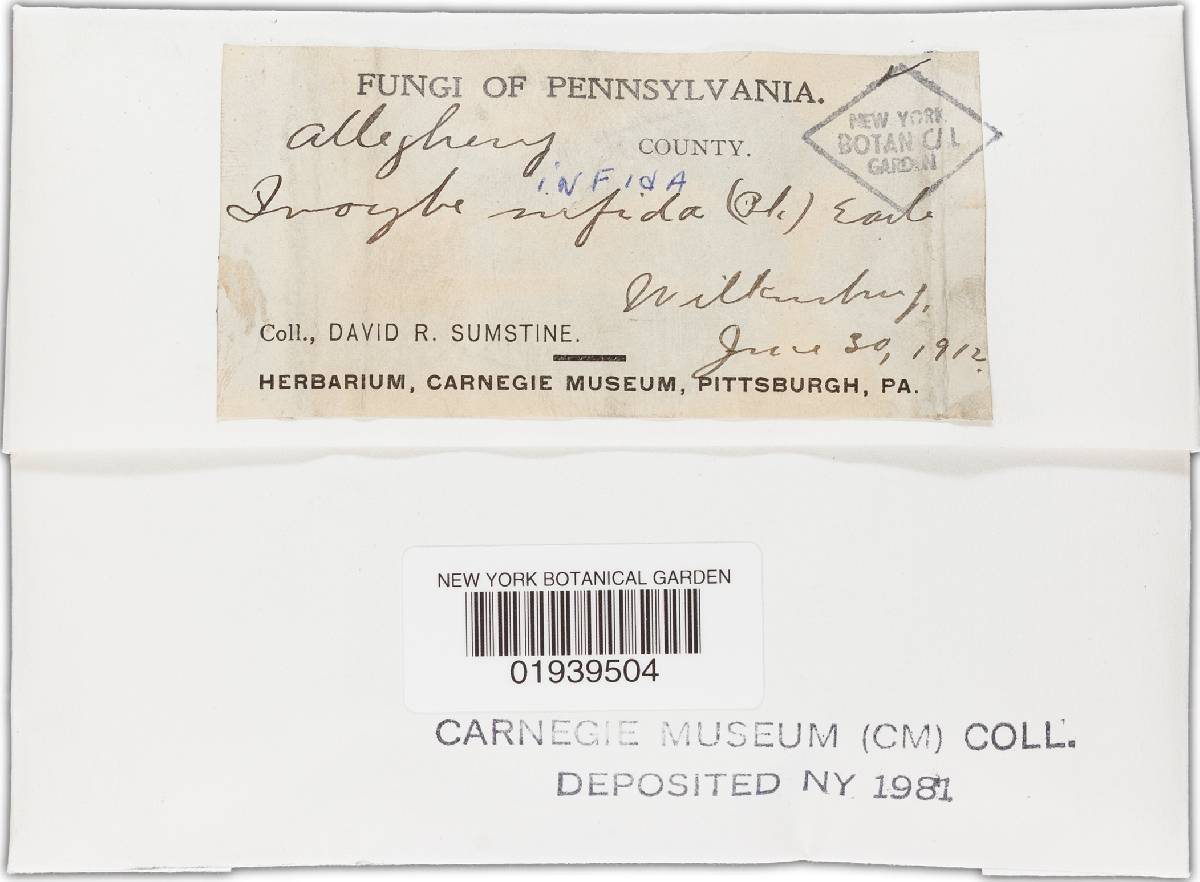 FUNGI OF PENNSYLVANIA.
Allegheny COUNTY.
INFIDA
Inocybe infida (Pk.) Earle
Wilkinsburg.
Coll., DAVID R. SUMSTINE.
June 30, 1912.
HERBARIUM, CARNEGIE MUSEUM, PITTSBURGH, PA.
NEW YORK
BOTANICAL
GARDEN
NEW YORK BOTANICAL GARDEN
01939504
CARNEGIE MUSEUM (CM) COLL.
DEPOSITED NY 1981